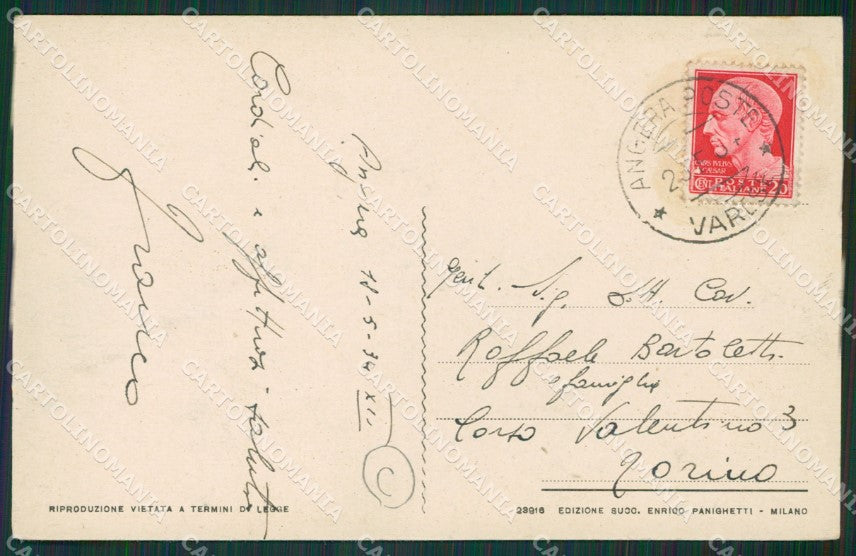 Angera 18-5-34 XII
Cordiali e affettuosi saluti
Franco
ANGERA POSTE
VARESE
CAIVS IVLIVS
CAESAR
POSTE
CENT. ITALIANE 20
Gent. Sig. Cav.
Raffaele Bartoletti
e famiglia
Corso Valentino 3
Torino
RIPRODUZIONE VIETATA A TERMINI DI LEGGE
28916 EDIZIONE SUCC. ENRICO PANIGHETTI - MILANO
CARTOLINOMANIA